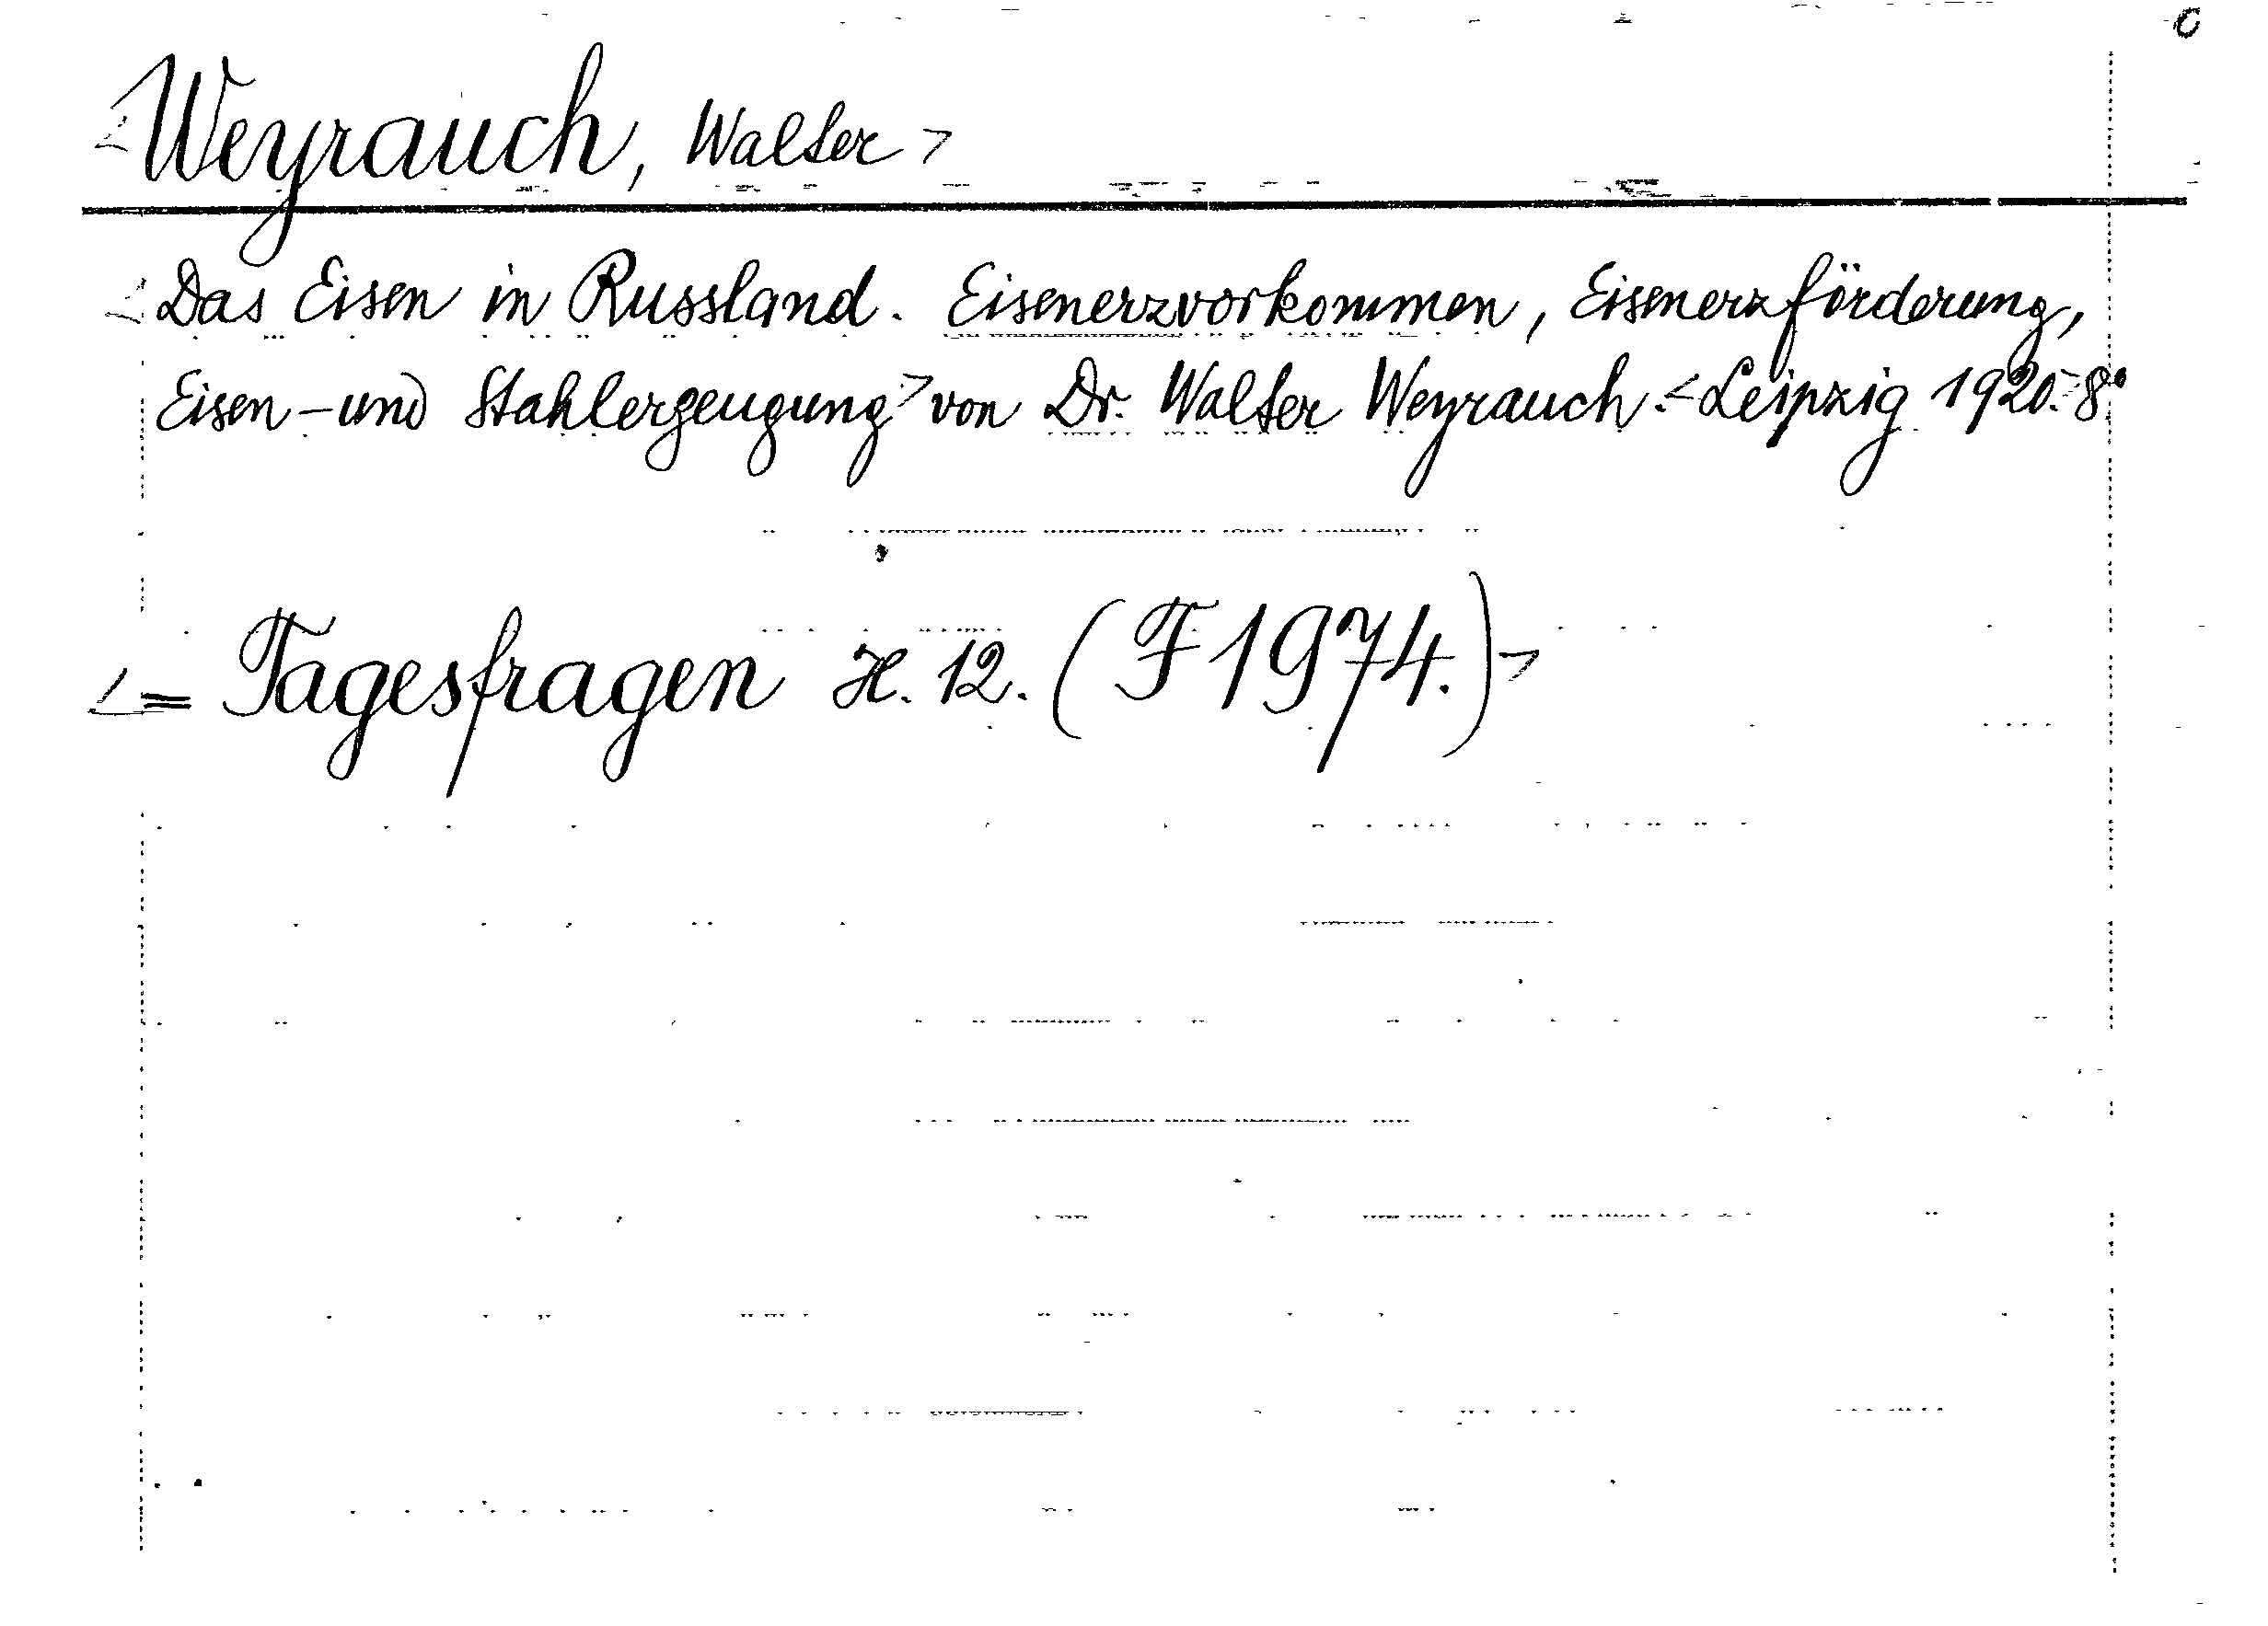 <Weyrauch, Walter>
<Das Eisen in Russland. Eisenerzvorkommen, Eisenerzförderung,
Eisen- und Stahlerzeugung> von Dr. Walter Weyrauch.<Leipzig 1920. 8°
<= Tagesfragen H. 12. (F 1974.)>